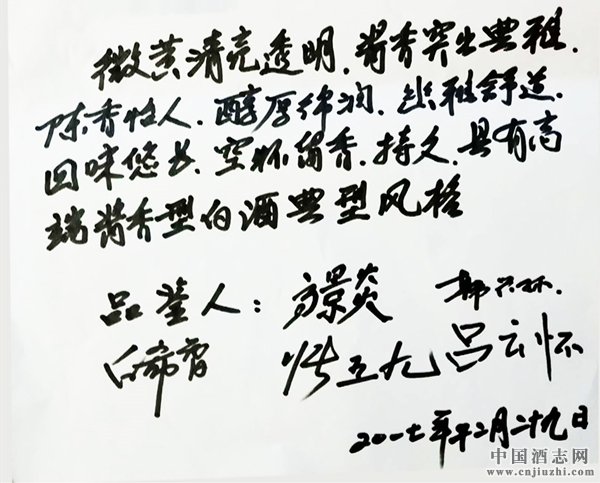 微黄清亮透明、酱香突出典雅、
陈香怡人、醇厚绵润、幽雅舒适、
回味悠长、空杯留香、持久、具有高
端酱香型白酒典型风格
品鉴人：高景炎
白希智 吕云怀
二〇一七年十二月二十九日
中国酒志网
www.cnjiuzhi.com